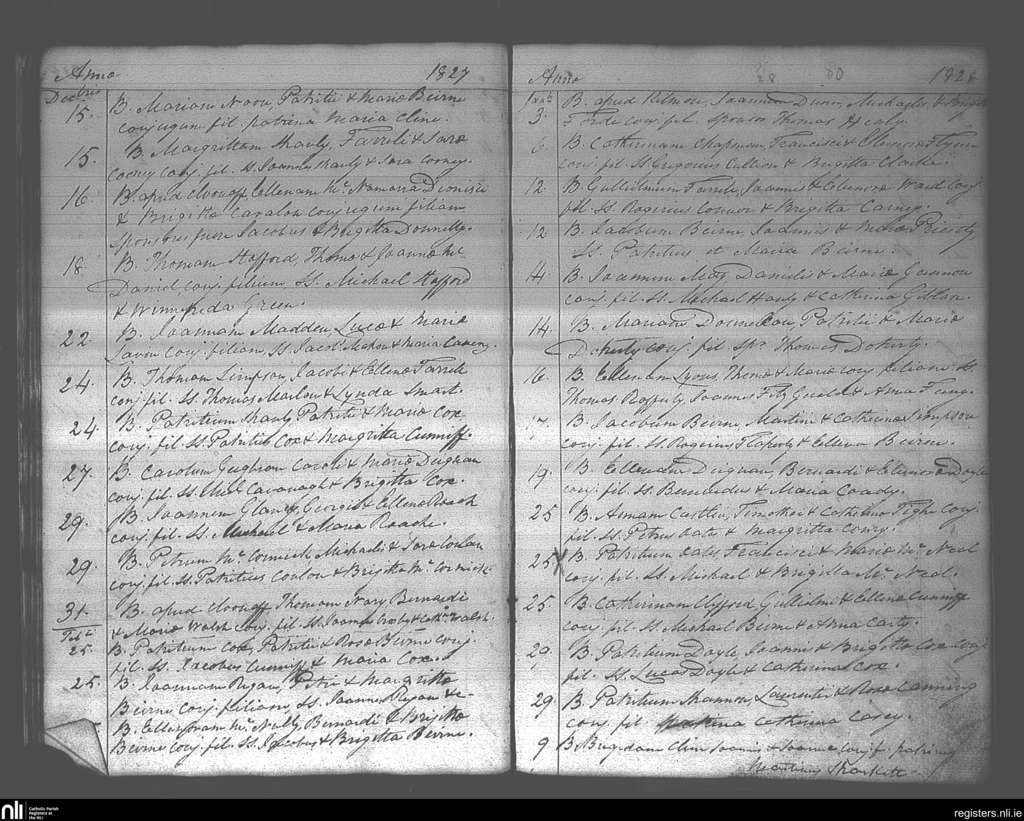 Anno 1827
Decbris
15. B. Mariam Noon, Patritii & Maria Beirne
conjugum fil. patrina Maria Cline.
15. B. Margrittam Hanly, Farreli & Sara
Cooney conj. fil. Ss. Joannes Hanly & Sara Cooney.
16. B. apud Cloonaff Ellenam McNamara Dionisii
& Brigitta conjugum filiam
sponsores fuere Jacobus & Brigitta Donnelly.
18. B. Thomam Stafford Thoma & Joanna
Daniel, conj. filium, Ss. Michael Stafford
& Winnifrida Green.
22. B. Joannam Madden, Luca & Maria
conj. filiam, Ss. Jacob. Mahon & Maria
24. B. Thomam Simpson, Jacobi & Ellena Farrell
conj. fil. Ss. Thomas & Lynda Smart.
24. B. Patritium Hanly Patritii & Maria Cox
conj. fil. Ss. Patritius Cox & Margritta Cunniff.
27. B. Carolum Caroli & Maria Duignan
conj. fil. Ss. Michl Cavanagh & Brigitta Cox.
29. B. Joannem Georgii & Ellena Roach
conj. fil. Ss. Michael & Maria Roache.
29. B. Petrum McCormick Michaelis & Sara Conlan
conj. fil. Ss. Patritius Conlon & Brigitta McCormick
31. B. apud Cloonaff Thomam Nary Bernardi
& Maria Walsh conj. fil. Ss. Joannes & Walsh.
25. B. Patritium Cox, Patritii & Rosa Beirne conj.
fil. Ss. Jacobus Cunniff & Maria Cox.
25. B. Joannam Regan, Petri & Margritta
Beirne conj. filiam, Ss. Joannes Regan &c
B. McNally, Bernardi & Brigitta
Beirne conj. fil. Ss. Jacobus & Brigitta Beirne.
Anno 1828
3. B. apud Kilmore, Joannem Michaelis &
Forde conj. fil. sponsor Thomas Healy.
6 B. Catherinam Chapman, Francisci & Elenora Flynn
conj. fil. Ss. Gregorius Cullion & Brigitta Clarke.
12 B. Gullielmum Farrell, Joannis & Ellenora Ward conj.
fil. Ss. Rogerius Connor & Brigitta
12 B. Jacobum Beirne, Joannis & Maria Priestly
Ss. Patritius et Maria Beirne.
14. B. Joannem May Danielis & Maria Gannon
conj. fil. Ss. Michael Hanly & Catherina Gibbon.
14. B. Mariam Patritii & Maria
Doherty conj. fil. sps. Thomas Doherty.
16. B. Ellenam Lyons, Thoma & Maria conj. filiam Ss.
Thomas Rafferty Joannes Fitz Gerald & Anna
17. B. Jacobum Beirne, Martini & Catherina Simpson
conj. fil. Ss. Rogerius Flaherty & Ellena Beirne.
19. B. Ellenam Duignan, Bernardi & Doyle
conj. fil. Ss. Bernardus & Maria Coady.
25 B. Annam Castler, Timothei & Catherina Tighe conj.
fil. Ss. Petrus Oats & Margritta Conry.
25 X B. Patritium Oates Francisci & Maria McNeal
conj. fil. Ss. Michael & Brigitta McNeal.
25. B. Catherinam Clyfford Gullielmi & Ellena Cunniff
conj. fil. Ss. Michael Beirne & Anna Carty.
29. B. Patritium Doyle, Joannis & Brigitta Cox conj.
fil. Ss. Lucas Doyle & Catherina Cox.
29 B. Patritium Shannon, Laurentii & Rosa Canning
conj. fil. Catherina Casey.
9 B. Cline Joannis & Joanna conj. f.
Sharkett
nli
Catholic Parish
Registers at
the NLI
registers.nli.ie